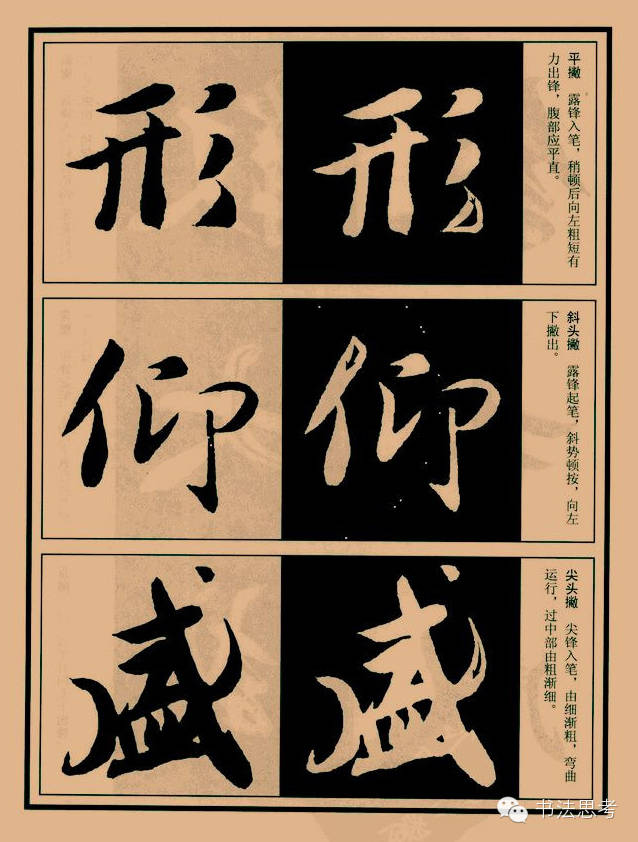 平撇 露锋入笔，稍顿后向左粗短有
力出锋，腹部应平直。
形 形
斜头撇 露锋起笔，斜势顿按，向左
下撇出。
仰 仰
尖头撇 尖锋入笔，由细渐粗，弯曲
运行，过中部由粗渐细。
盛 盛
书法思考